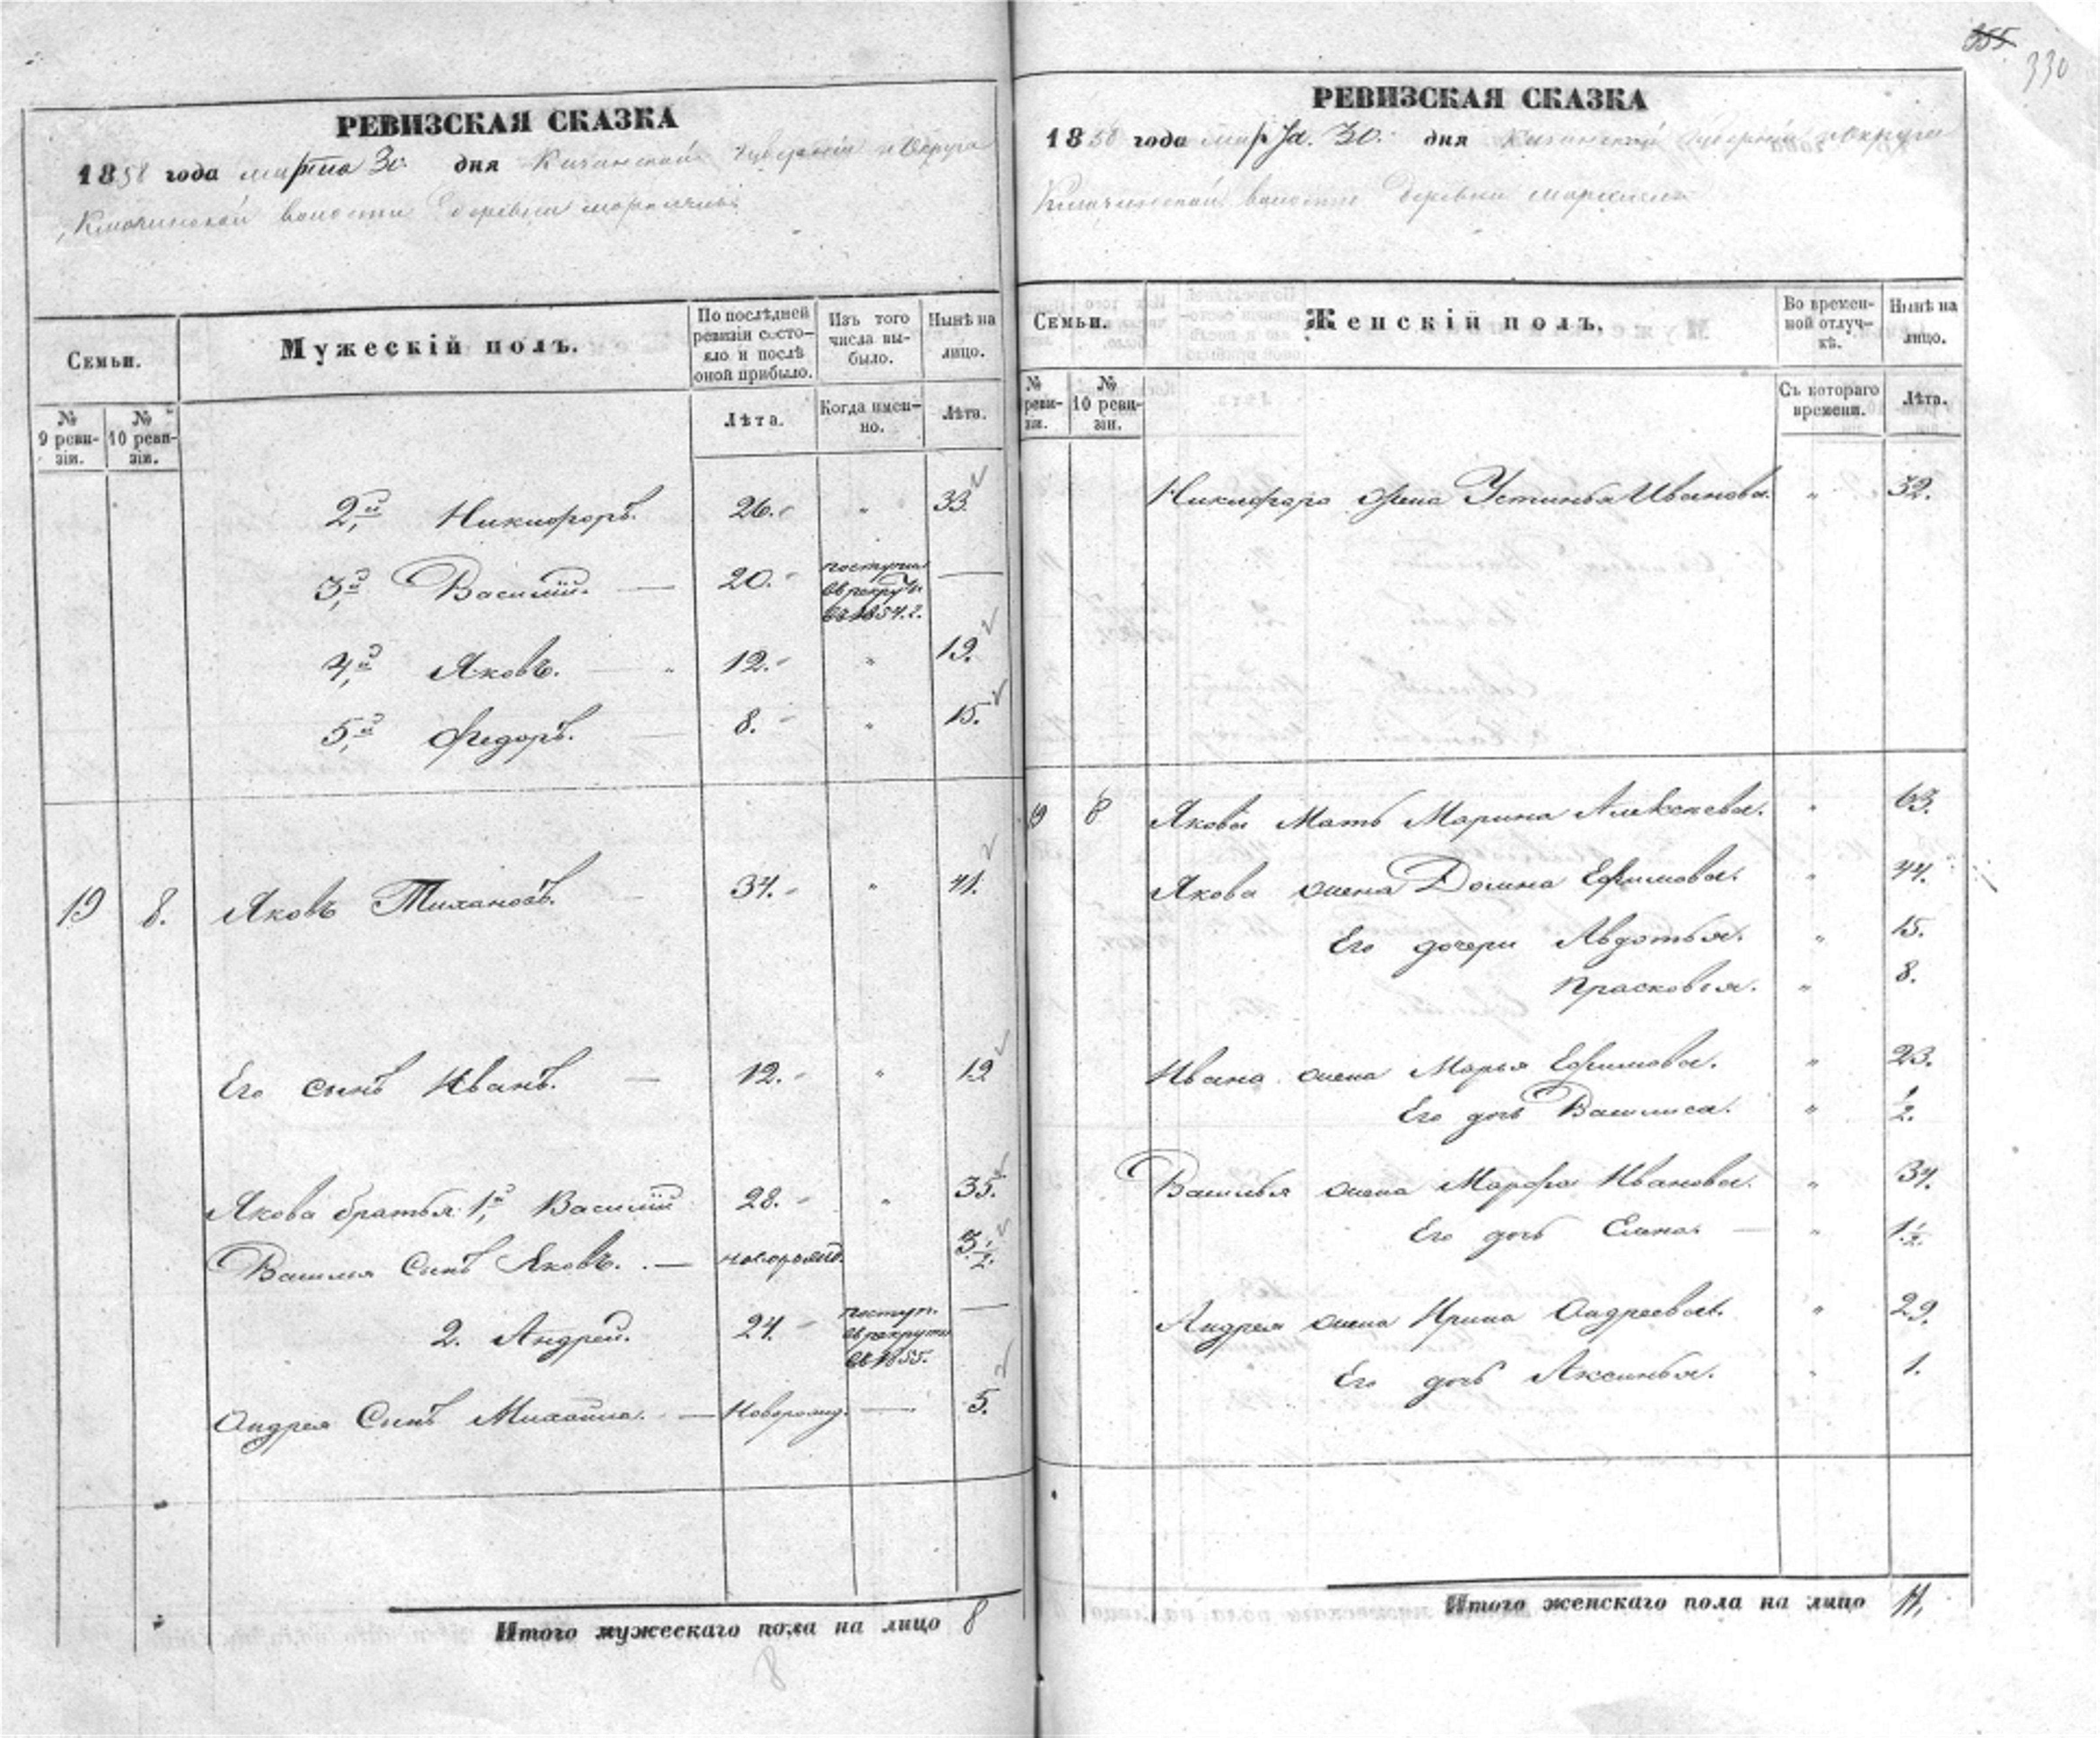 355. 330
РЕВИЗСКАЯ СКАЗКА
1858 года марта 30 дня Казанской Губерніи и Округа
Ключинской волости деревни
Семьи.
Мужескій полъ.
По послѣдней ревизіи состояло и послѣ оной прибыло.
Изъ того числа выбыло.
Нынѣ на лицо.
№ 9 ревизіи.
№ 10 ревизіи.
Лѣта.
Когда именно.
Лѣта.
2й Никифоръ. 26. " 33
3й Василій. — 20. поступил в рекруты въ 1854 г. —
4й Яковъ. — " 12. " 19.
5й Федоръ. — 8. " 15.
19 8. Яковъ Тихановъ. — 34. " 41.
Его сынъ Иванъ. — 12. " 19
Якова братья: 1й Василій 28. " 35.
Василья Сынъ Яковъ. — новорожд. 3 1/2
2. Андрей. 24. поступ. в рекруты въ 1855. —
Андрея Сынъ Михайла. — Новорожд. — 5.
Итого мужескаго пола на лицо 8
8
РЕВИЗСКАЯ СКАЗКА
1858 года марта 30. дня Казанской Губерніи и Округа
Ключинской волости деревни
Семьи.
Женскій полъ.
Во временной отлучкѣ.
Нынѣ на лицо.
№ ревизіи.
№ 10 ревизіи.
Съ котораго времени.
Лѣта.
Никифора жена Устинья Иванова. " 32.
19 8 Якова Мать Марина Алексеева. " 63.
Якова жена Домна Ефимова. " 44.
Его дочери Авдотья. " 15.
Прасковья. " 8.
Ивана жена Марья Ефимова. " 23.
Его дочь Василиса. " 1/2.
Василья жена Марфа Иванова. " 34.
Его дочь Елена. — " 1 1/2.
Андрея жена Ирина Андреева. " 29.
Его дочь Аксинья. " 1.
Итого женскаго пола на лицо 11.